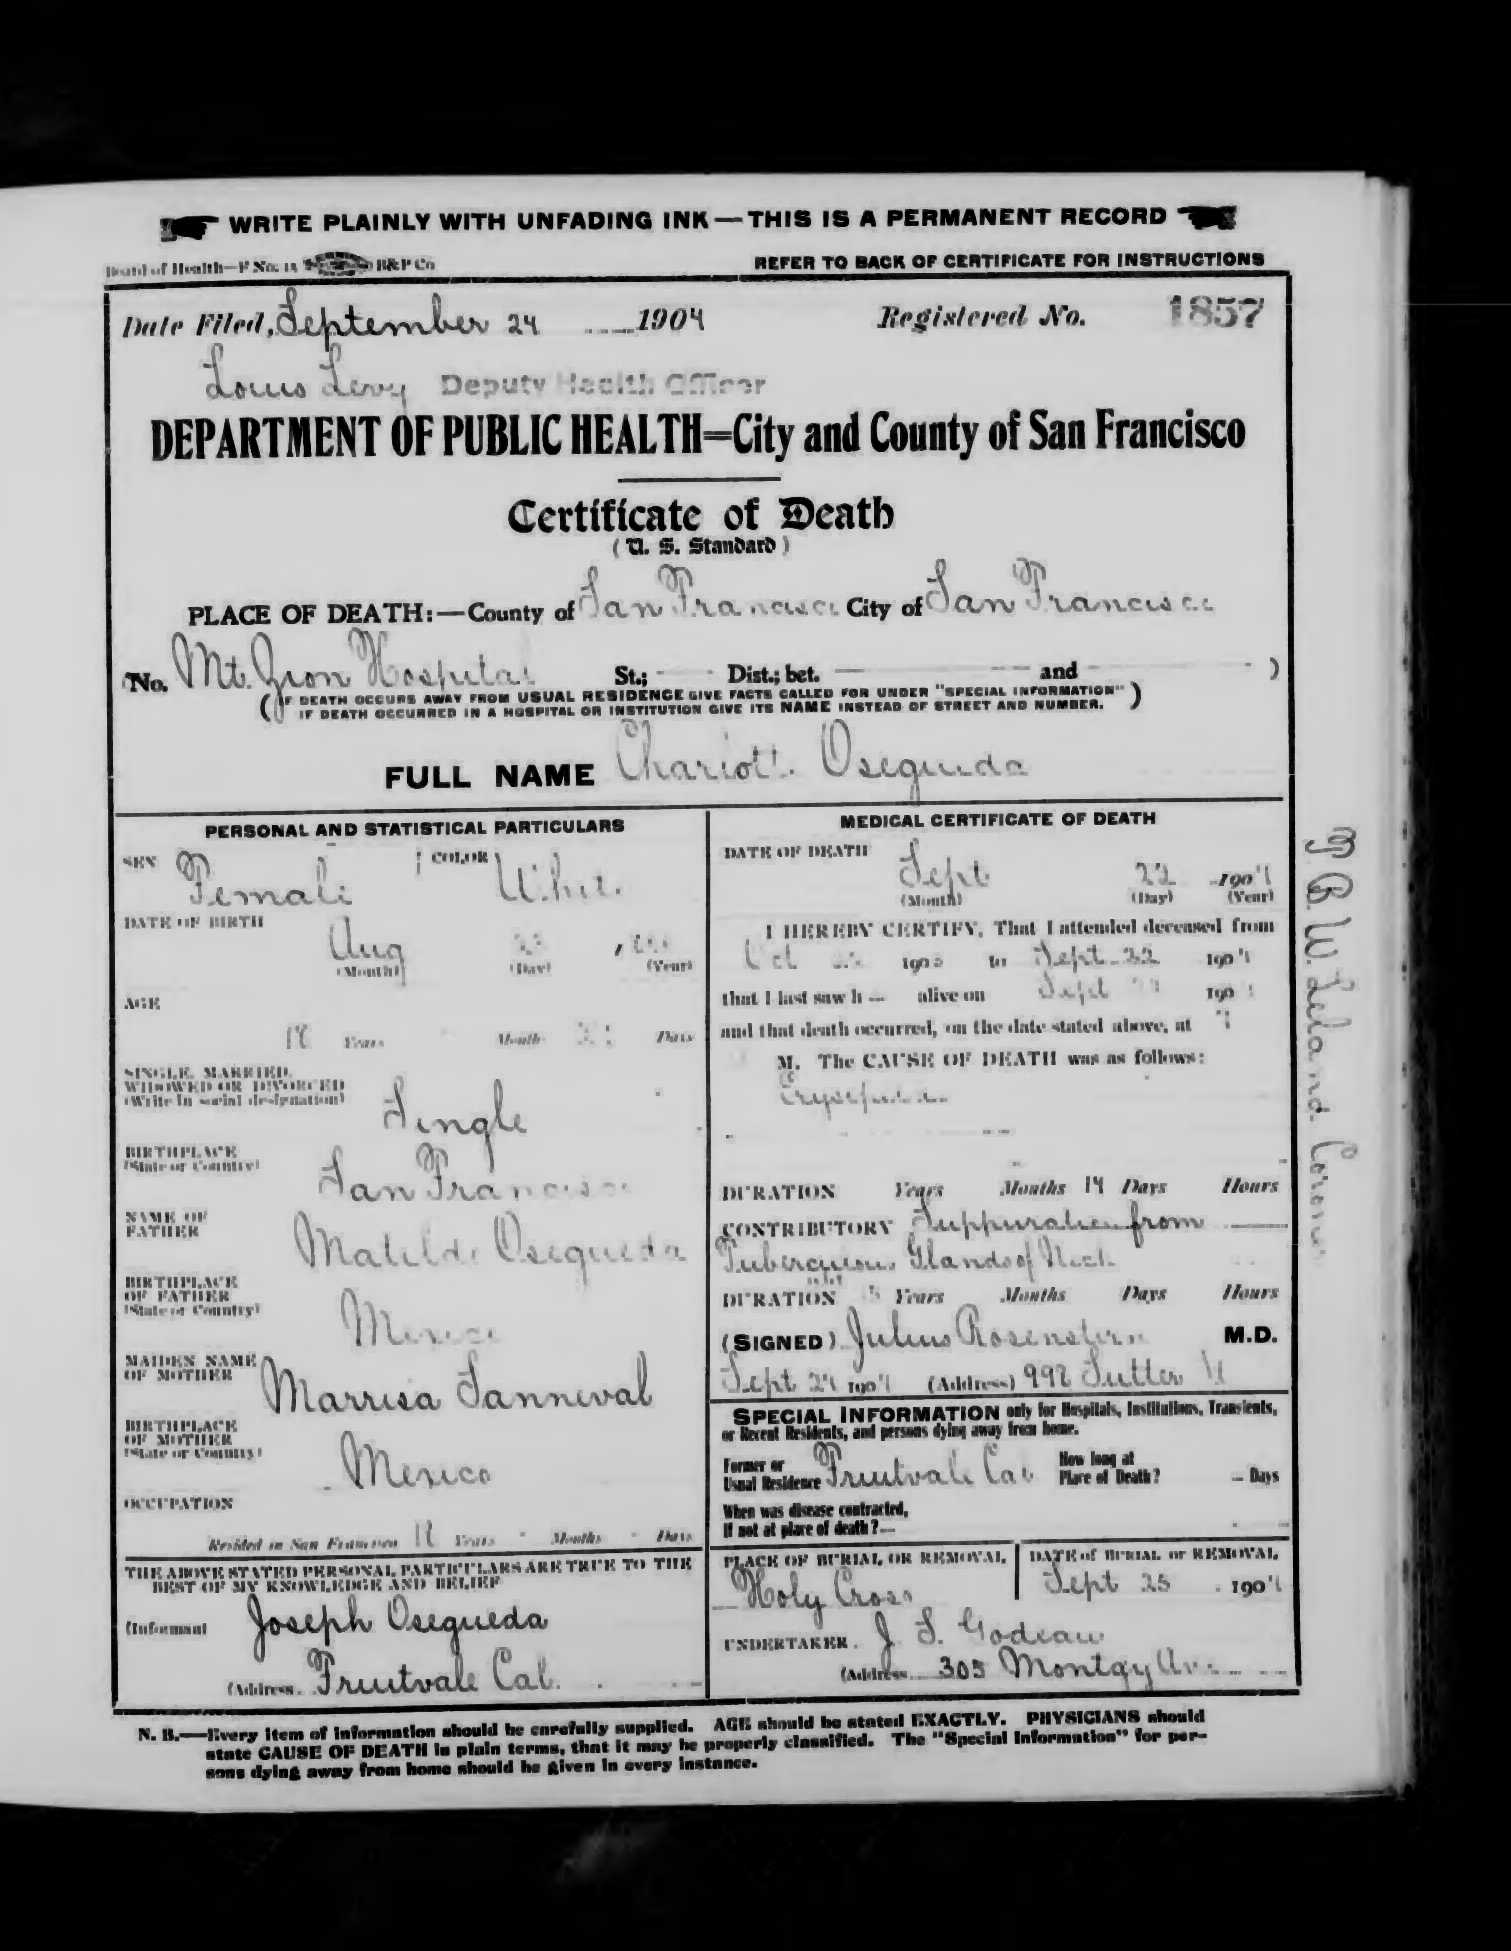 WRITE PLAINLY WITH UNFADING INK — THIS IS A PERMANENT RECORD
Board of Health—F No. 15 B&P Co
REFER TO BACK OF CERTIFICATE FOR INSTRUCTIONS
Date Filed, September 24 1904 Registered No. 1857
Louis Levy Deputy Health Officer
DEPARTMENT OF PUBLIC HEALTH=City and County of San Francisco
Certificate of Death
(U. S. Standard)
PLACE OF DEATH:—County of San Francisco City of San Francisco
(No. Mt. Zion Hospital St.; Dist.; bet. and )
(IF DEATH OCCURS AWAY FROM USUAL RESIDENCE GIVE FACTS CALLED FOR UNDER "SPECIAL INFORMATION"
IF DEATH OCCURRED IN A HOSPITAL OR INSTITUTION GIVE ITS NAME INSTEAD OF STREET AND NUMBER.)
FULL NAME Osegueda
PERSONAL AND STATISTICAL PARTICULARS
SEX Female COLOR White
DATE OF BIRTH
Aug
(Month) (Day) (Year)
AGE
18 Years Months Days
SINGLE, MARRIED,
WIDOWED OR DIVORCED
(Write in social designation)
Single
BIRTHPLACE
(State or Country)
San Francisco
NAME OF
FATHER
Matilde Osegueda
BIRTHPLACE
OF FATHER
(State or Country)
Mexico
MAIDEN NAME
OF MOTHER
Marrisa Sanneval
BIRTHPLACE
OF MOTHER
(State or Country)
Mexico
OCCUPATION
Resided in San Francisco 18 Years Months Days
THE ABOVE STATED PERSONAL PARTICULARS ARE TRUE TO THE
BEST OF MY KNOWLEDGE AND BELIEF
(Informant Joseph Osegueda
(Address Fruitvale Cal.
MEDICAL CERTIFICATE OF DEATH
DATE OF DEATH
Sept 22 1904
(Month) (Day) (Year)
I HEREBY CERTIFY, That I attended deceased from
Oct 190 to Sept 22 1904
that I last saw h — alive on Sept 190
and that death occurred, on the date stated above, at
M. The CAUSE OF DEATH was as follows:
Erysipelas
DURATION Years Months 14 Days Hours
CONTRIBUTORY Suppuration from
Tuberculous Glands of Neck
DURATION Years Months Days Hours
(SIGNED) Julius Rosenstirn M.D.
Sept 24 1904 (Address) 992 Sutter St
SPECIAL INFORMATION only for Hospitals, Institutions, Transients,
or Recent Residents, and persons dying away from home.
Former or
Usual Residence Fruitvale Cal
How long at
Place of Death? — Days
When was disease contracted,
If not at place of death?—
PLACE OF BURIAL OR REMOVAL
Holy Cross
DATE of BURIAL or REMOVAL
Sept 25 1904
UNDERTAKER J. S. Godeau
(Address 305 Montgy Av.
N. B.—Every item of information should be carefully supplied. AGE should be stated EXACTLY. PHYSICIANS should
state CAUSE OF DEATH in plain terms, that it may be properly classified. The "Special Information" for per-
sons dying away from home should be given in every instance.
T. B. W. Leland. Coroner